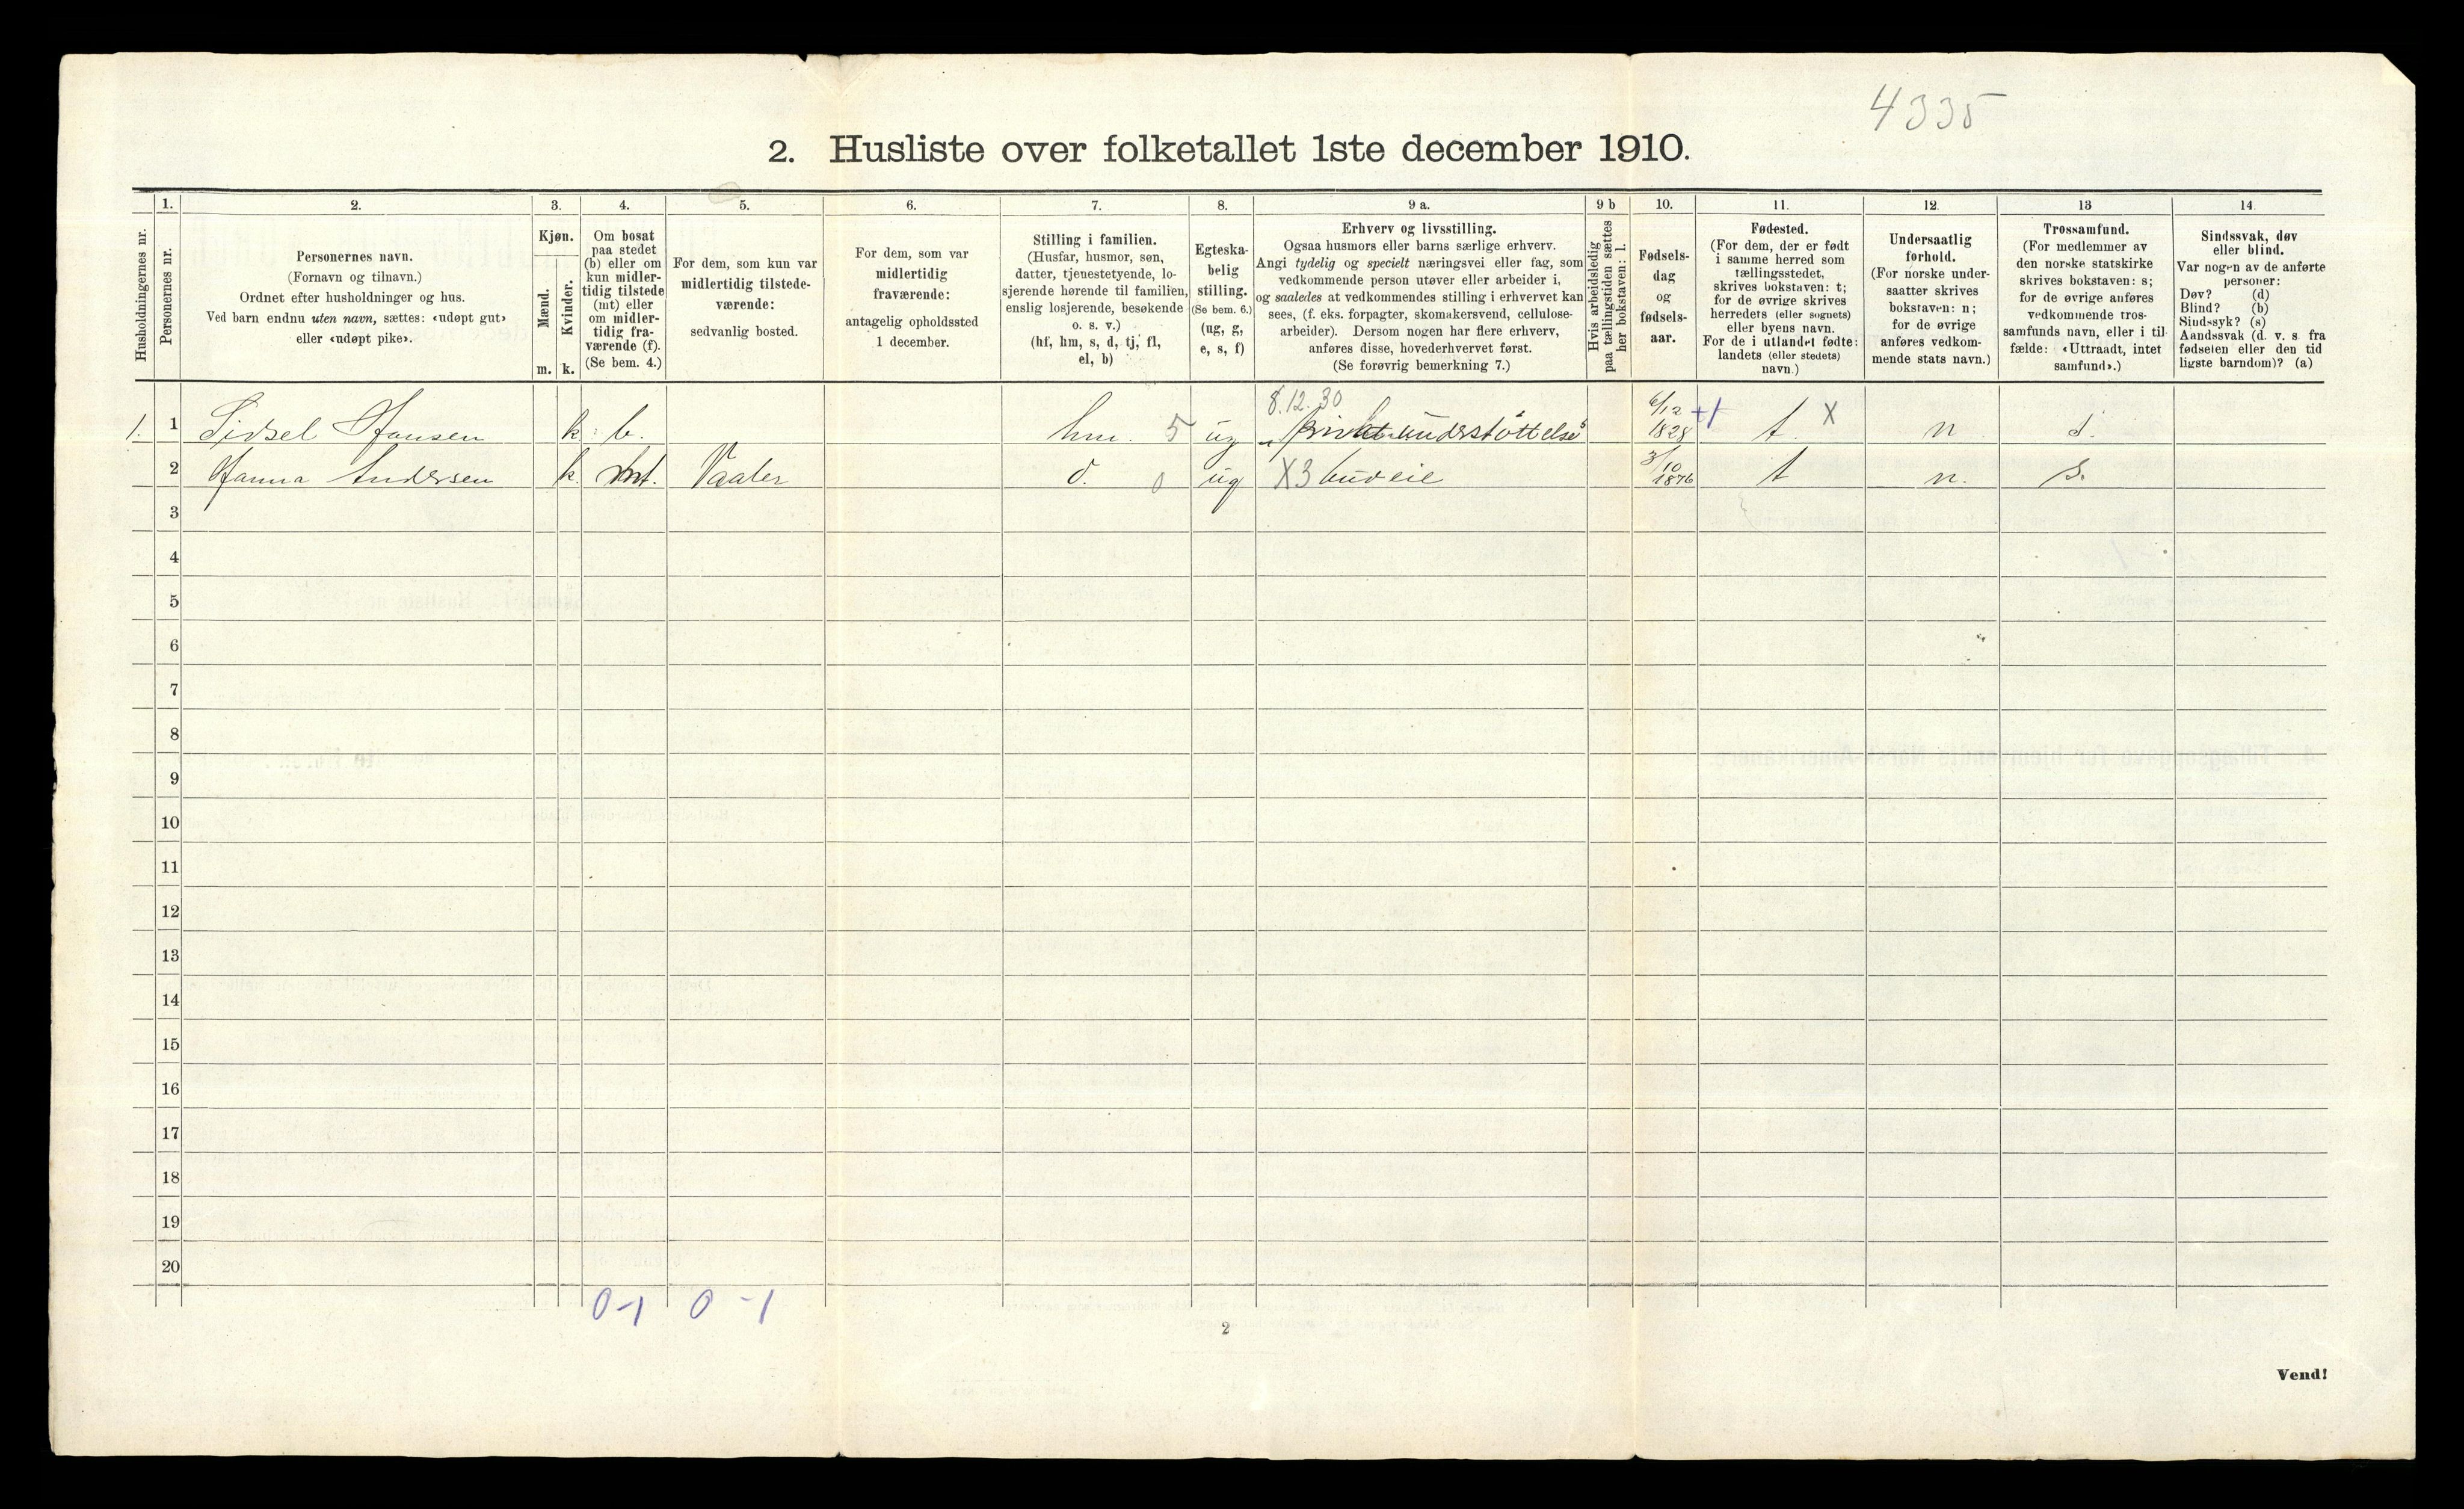 4335
2. Husliste over folketallet 1ste december 1910.
Husholdningernes nr.
1.
Personernes nr.
2.
Personernes navn.
(Fornavn og tilnavn.)
Ordnet efter husholdninger og hus.
Ved barn endnu uten navn, sættes: «udøpt gut»
eller «udøpt pike».
3.
Kjøn.
Mænd.
Kvinder.
m. k.
4.
Om bosat
paa stedet
(b) eller om
kun midler-
tidig tilstede
(mt) eller
om midler-
tidig fra-
værende (f).
(Se bem. 4.)
5.
For dem, som kun var
midlertidig tilstede-
værende:
sedvanlig bosted.
6.
For dem, som var
midlertidig
fraværende:
antagelig opholdssted
1 december.
7.
Stilling i familien.
(Husfar, husmor, søn,
datter, tjenestetyende, lo-
sjerende hørende til familien,
enslig losjerende, besøkende
o. s. v.)
(hf, hm, s, d, tj, fl,
el, b)
8.
Egteska-
belig
stilling.
(Se bem. 6.)
(ug, g,
e, s, f)
9 a.
Erhverv og livsstilling.
Ogsaa husmors eller barns særlige erhverv.
Angi tydelig og specielt næringsvei eller fag, som
vedkommende person utøver eller arbeider i,
og saaledes at vedkommendes stilling i erhvervet kan
sees, (f. eks. forpagter, skomakersvend, cellulose-
arbeider). Dersom nogen har flere erhverv,
anføres disse, hovederhvervet først.
(Se forøvrig bemerkning 7.)
9 b
Hvis arbeidsledig
paa tællingstiden sættes
her bokstaven: l.
10.
Fødsels-
dag
og
fødsels-
aar.
11.
Fødested.
(For dem, der er født
i samme herred som
tællingsstedet,
skrives bokstaven: t;
for de øvrige skrives
herredets (eller sognets)
eller byens navn.
For de i utlandet fødte:
landets (eller stedets)
navn.)
12.
Undersaatlig
forhold.
(For norske under-
saatter skrives
bokstaven: n;
for de øvrige
anføres vedkom-
mende stats navn.)
13
Trossamfund.
(For medlemmer av
den norske statskirke
skrives bokstaven: s;
for de øvrige anføres
vedkommende tros-
samfunds navn, eller i til-
fælde: «Uttraadt, intet
samfund».)
14.
Sindssvak, døv
eller blind.
Var nogen av de anførte
personer:
Døv? (d)
Blind? (b)
Sindssyk? (s)
Aandssvak (d. v. s. fra
fødselen eller den tid
ligste barndom)? (a)
8.12.30
1. 1 Sidsel Hansen k. b. hm. 5 ug privat understøttelse 6/12 1828 +1 t. X n s.
2 Hanna Andersen k. mt. Vaaler d. 0 ug X3 budeie 3/10 1876 t n. s.
3
4
5
6
7
8
9
10
11
12
13
14
15
16
17
18
19
20
0-1 0-1
2
Vend!